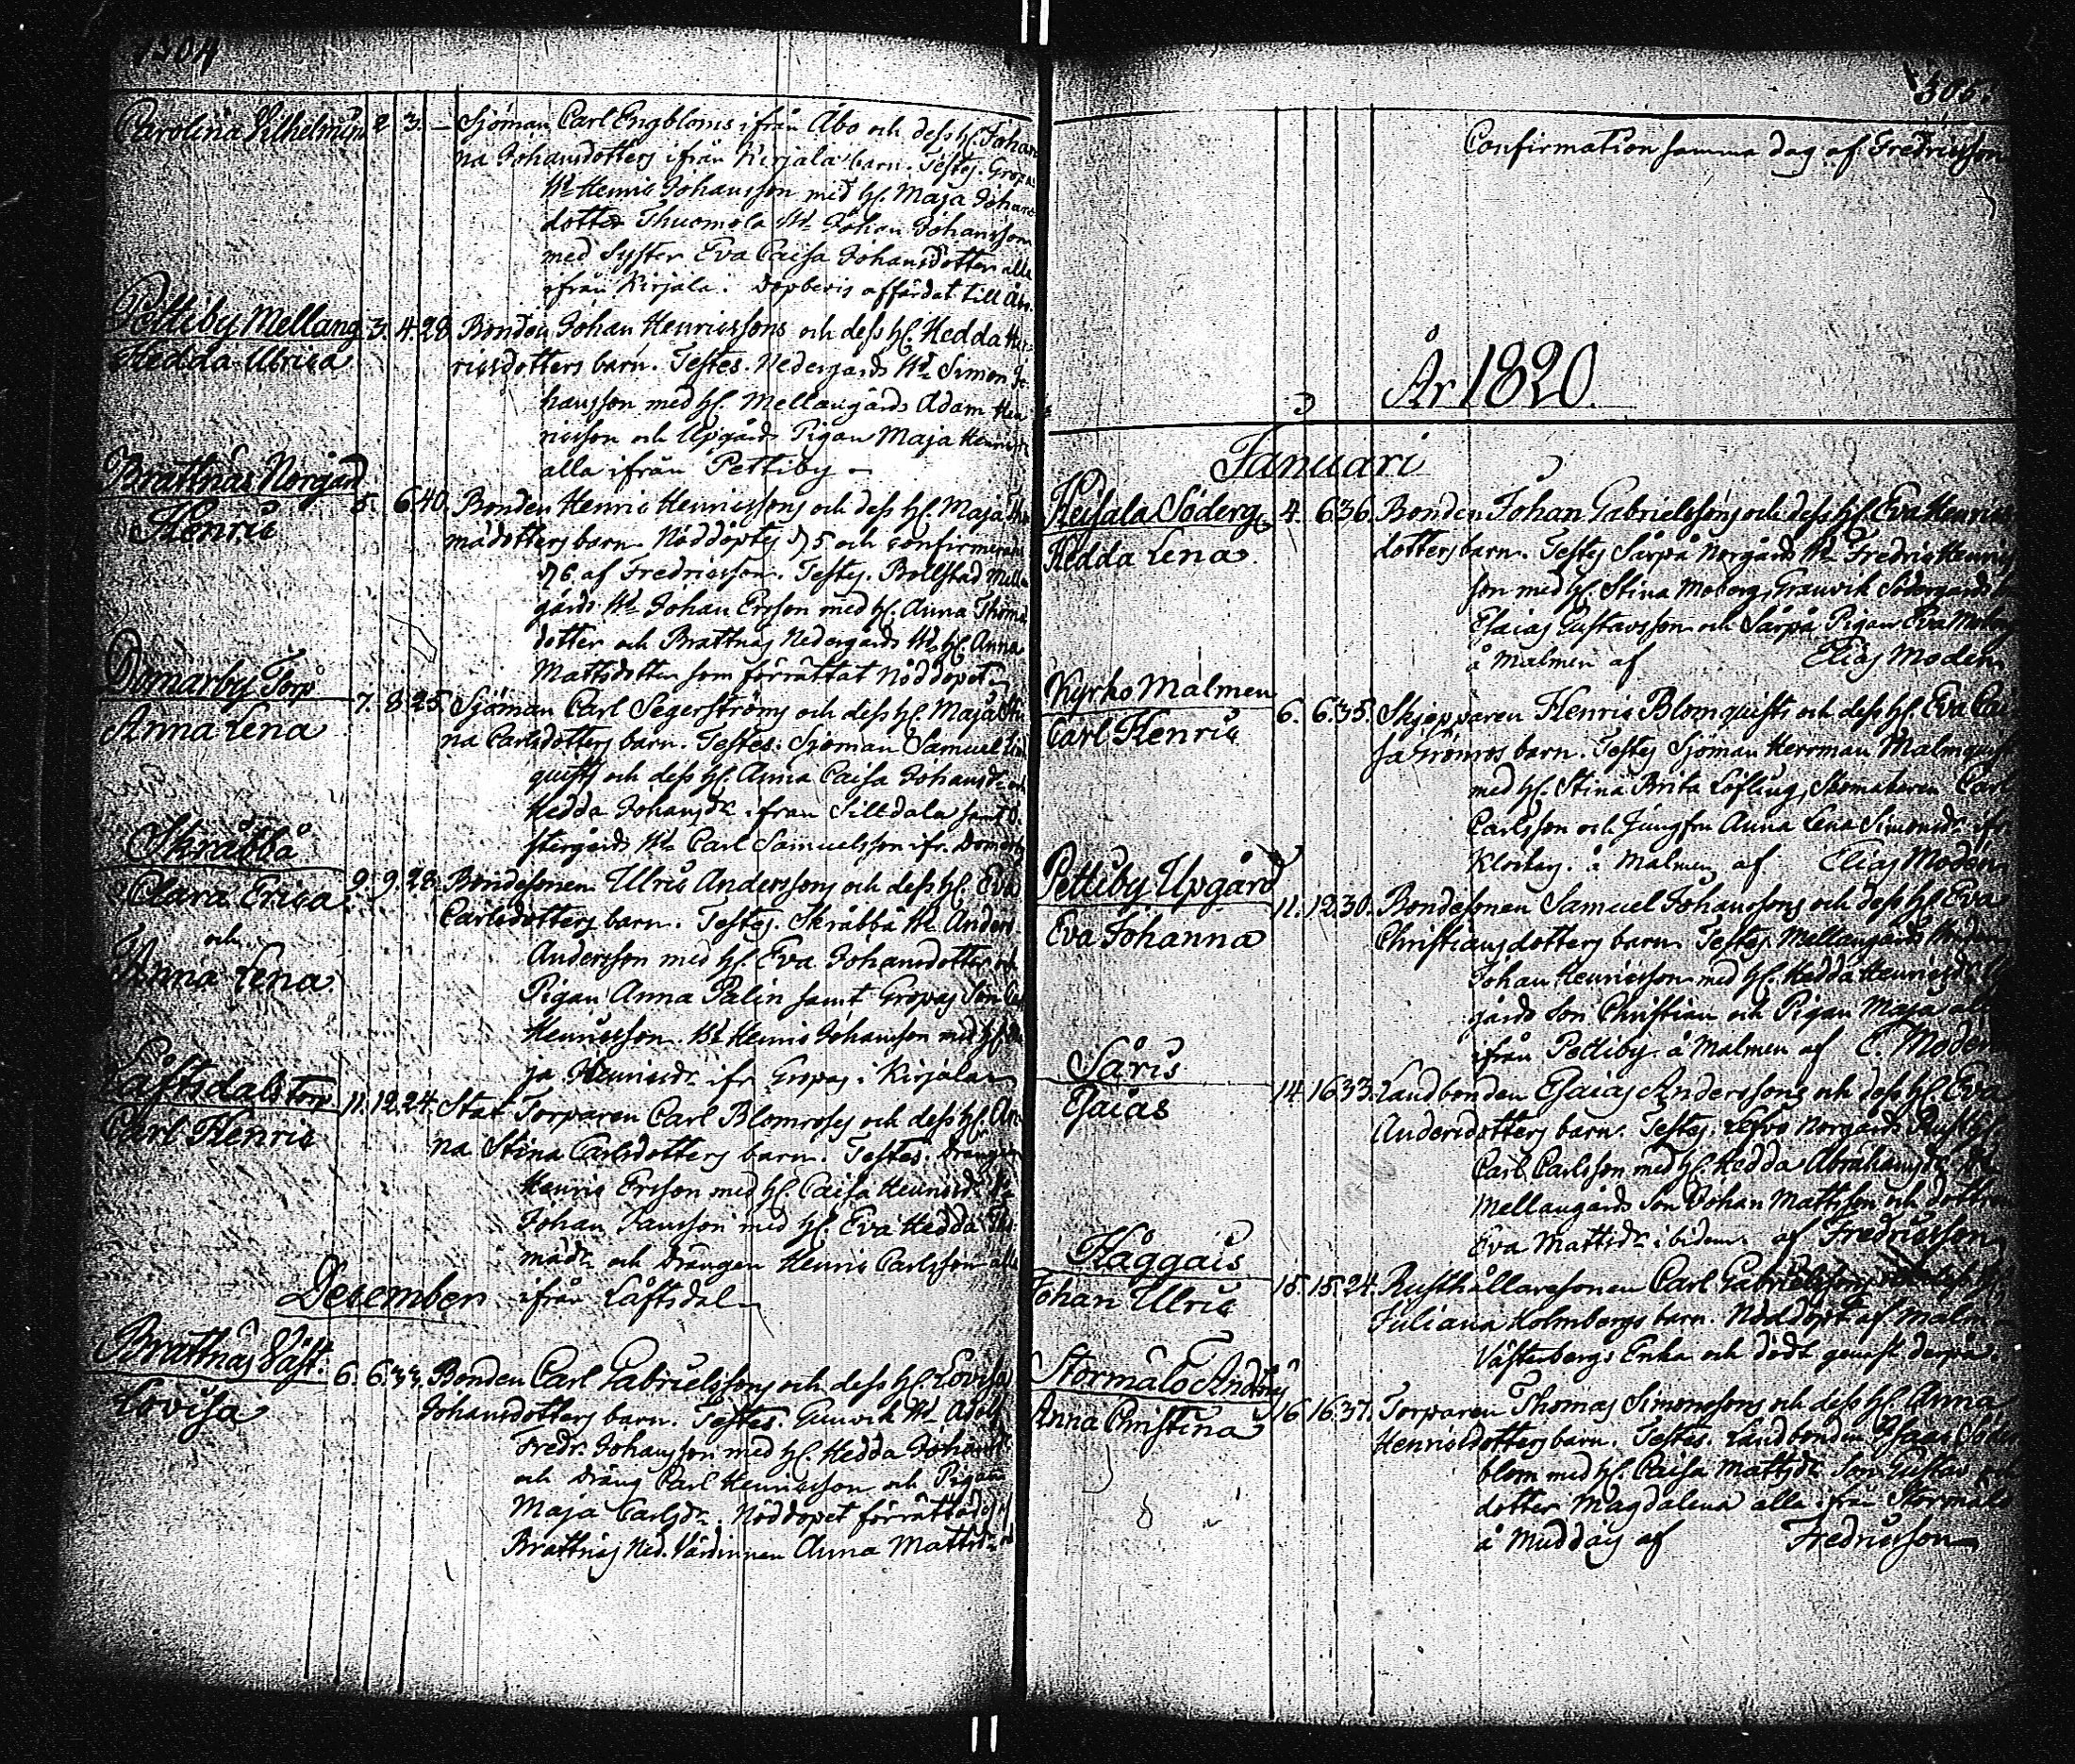 1504
Carolina Vilhelmina 2. 3. — Sjöman Carl Engbloms ifrån Åbo och dess H. Johan
na Johansdotters ifrån Kirjala barn. Testes. Gropas
Wd Henric Johansson med H. Maja Johans
dotter Thuomola Wd Johan Johansson
med Syster Eva Caisa Johansdotter alla
ifrån Kirjala. Dopbevis affärdat till Åbo.
Pettiby Mellang. 3. 4. 28. Bonden Johan Henricssons och dess H. Hedda Hen
Hedda Ulrica ricsdotters barn. Testes. Nedergårds Wd Simon Jo
hansson med H. Mellangårds Adam Hen
ricsson och Upgårds Pigan Maja Henricsdr
alla ifrån Pettiby —
Brattnäs Norgård
Henric 5. 6. 40. Bonden Henric Henricssons och dess H. Maja Tho
madotters barn. Nöddöptes d. 5 och confirmerades
d. 6. af Fredricsson. Testes. Bollstad Mellan
gårds Wd Johan Ersson med H. Anna Thoma
dotter och Brattnäs Nedergårds Wds H. Anna
Mattsdotter som förrättat Nöddopet.
Domarby Torp
Anna Lena 7. 8. 25. Sjöman Carl Segerströms och dess H. Maja Sti
na Carlsdotters barn. Testes: Sjöman Samuel Lind
quists och dess H. Anna Caisa Johansdr och
Hedda Johansdr ifrån Silldala samt Ö
stergårds Wd Carl Samuelsson ifr. Domarby
Skråbbå
Clara Erica 9. 9. 28. Bondesonen Ulric Anderssons och dess H. Eva
och Carlsdotters barn. Testes. Skråbbå Wd Anders
Anna Lena Andersson med H. Eva Johansdotter och
Pigan Anna Palin samt Gropas Son
Henricsson. Wd Henric Johansson med H. Ma
ja Henricsdr ifr Gropas i Kirjala
Låftsdals Torp
Carl Henric 11. 12. 24. Stat Torparen Carl Blomroses och dess H. An
na Stina Carlsdotters barn. Testes. Drängen
Henric Ersson med H. Caisa Henricsdr
Johan Jansson med H. Eva Hedda Tho
madr och Drängen Henric Carlsson alla
ifrån Låftsdal
December
Brattnäs Väst:
Lovisa 6. 6. 33. Bonden Carl Gabrielssons och dess H. Lovisa
Johansdotters barn. Testes. Gunvik Wd Adolf
Fredr. Johansson med H. Hedda Johansdr
och Dräng Carl Henricsson och Pigan
Maja Carlsdr. Nöddopet förrättades af
Brattnäs Ned. Värdinnan Anna Mattsdr
Confirmation samma dag af Fredricsson
År 1820.
Januari
Heisala Söderg. 4. 6. 36. Bonden Johan Gabrielssons och dess H. Eva Henrics
Hedda Lena dotters barn. Testes Sårpå Norgårds Wd Fredric Henrics
son med H. Stina Moberg, Granvik Södergårds
Esaias Gustavsson och Sårpå Pigan Eva Moberg
å Malmen af Elias Modeen
Kyrko Malmen
Carl Henric 6. 6. 35. Skjepparen Henric Blomquists och dess H. Eva Cai
sa Grönros barn. Testes Sjöman Herrman Malmquist
med H. Stina Brita Löfling, Skomakaren Carl
Carlsson och Jungfru Anna Lena Simonsdr ifr
Klockars. å Malmen af Elias Modeen
Pettiby Upgård
Eva Johanna 11. 12. 30. Bondesonen Samuel Johanssons och dess H. Eva
Christiansdotters barn. Testes Mellangårds Bonden
Johan Henricsson med H. Hedda Henricsdr
gårds Son Christian och Pigan Maja alla
ifrån Pettiby å Malmen af E. Modeen
Såris
Esaias 14. 16. 33. Landbonden Esaias Anderssons och dess H. Eva
Andersdotters barn. Testes. Norgårds Rusth.
Carl Carlsson med H. Hedda Abrahamsdr
Mellangårds Son Johan Mattsson och dottren
Eva Mattsdr ibidem. af Fredricsson
Håggais
Johan Ulric 15. 15. 24. Rusthållaresonen Carl Gabrielssons och dess H.
Juliana Holmbergs barn. Nöddöpt af Malm
Västerbergs Enka och dödt genast derpå.
Stormälö Andters
Anna Christina 16. 16. 37. Torparen Thomas Simonssons och dess H. Anna
Henricsdotters barn. Testes. Landbonden Esaias Söder
blom med H. Caisa Mattsdr Son Gustav och
dotter Magdalena alla ifrån Stormälö
å Muddais af Fredricsson